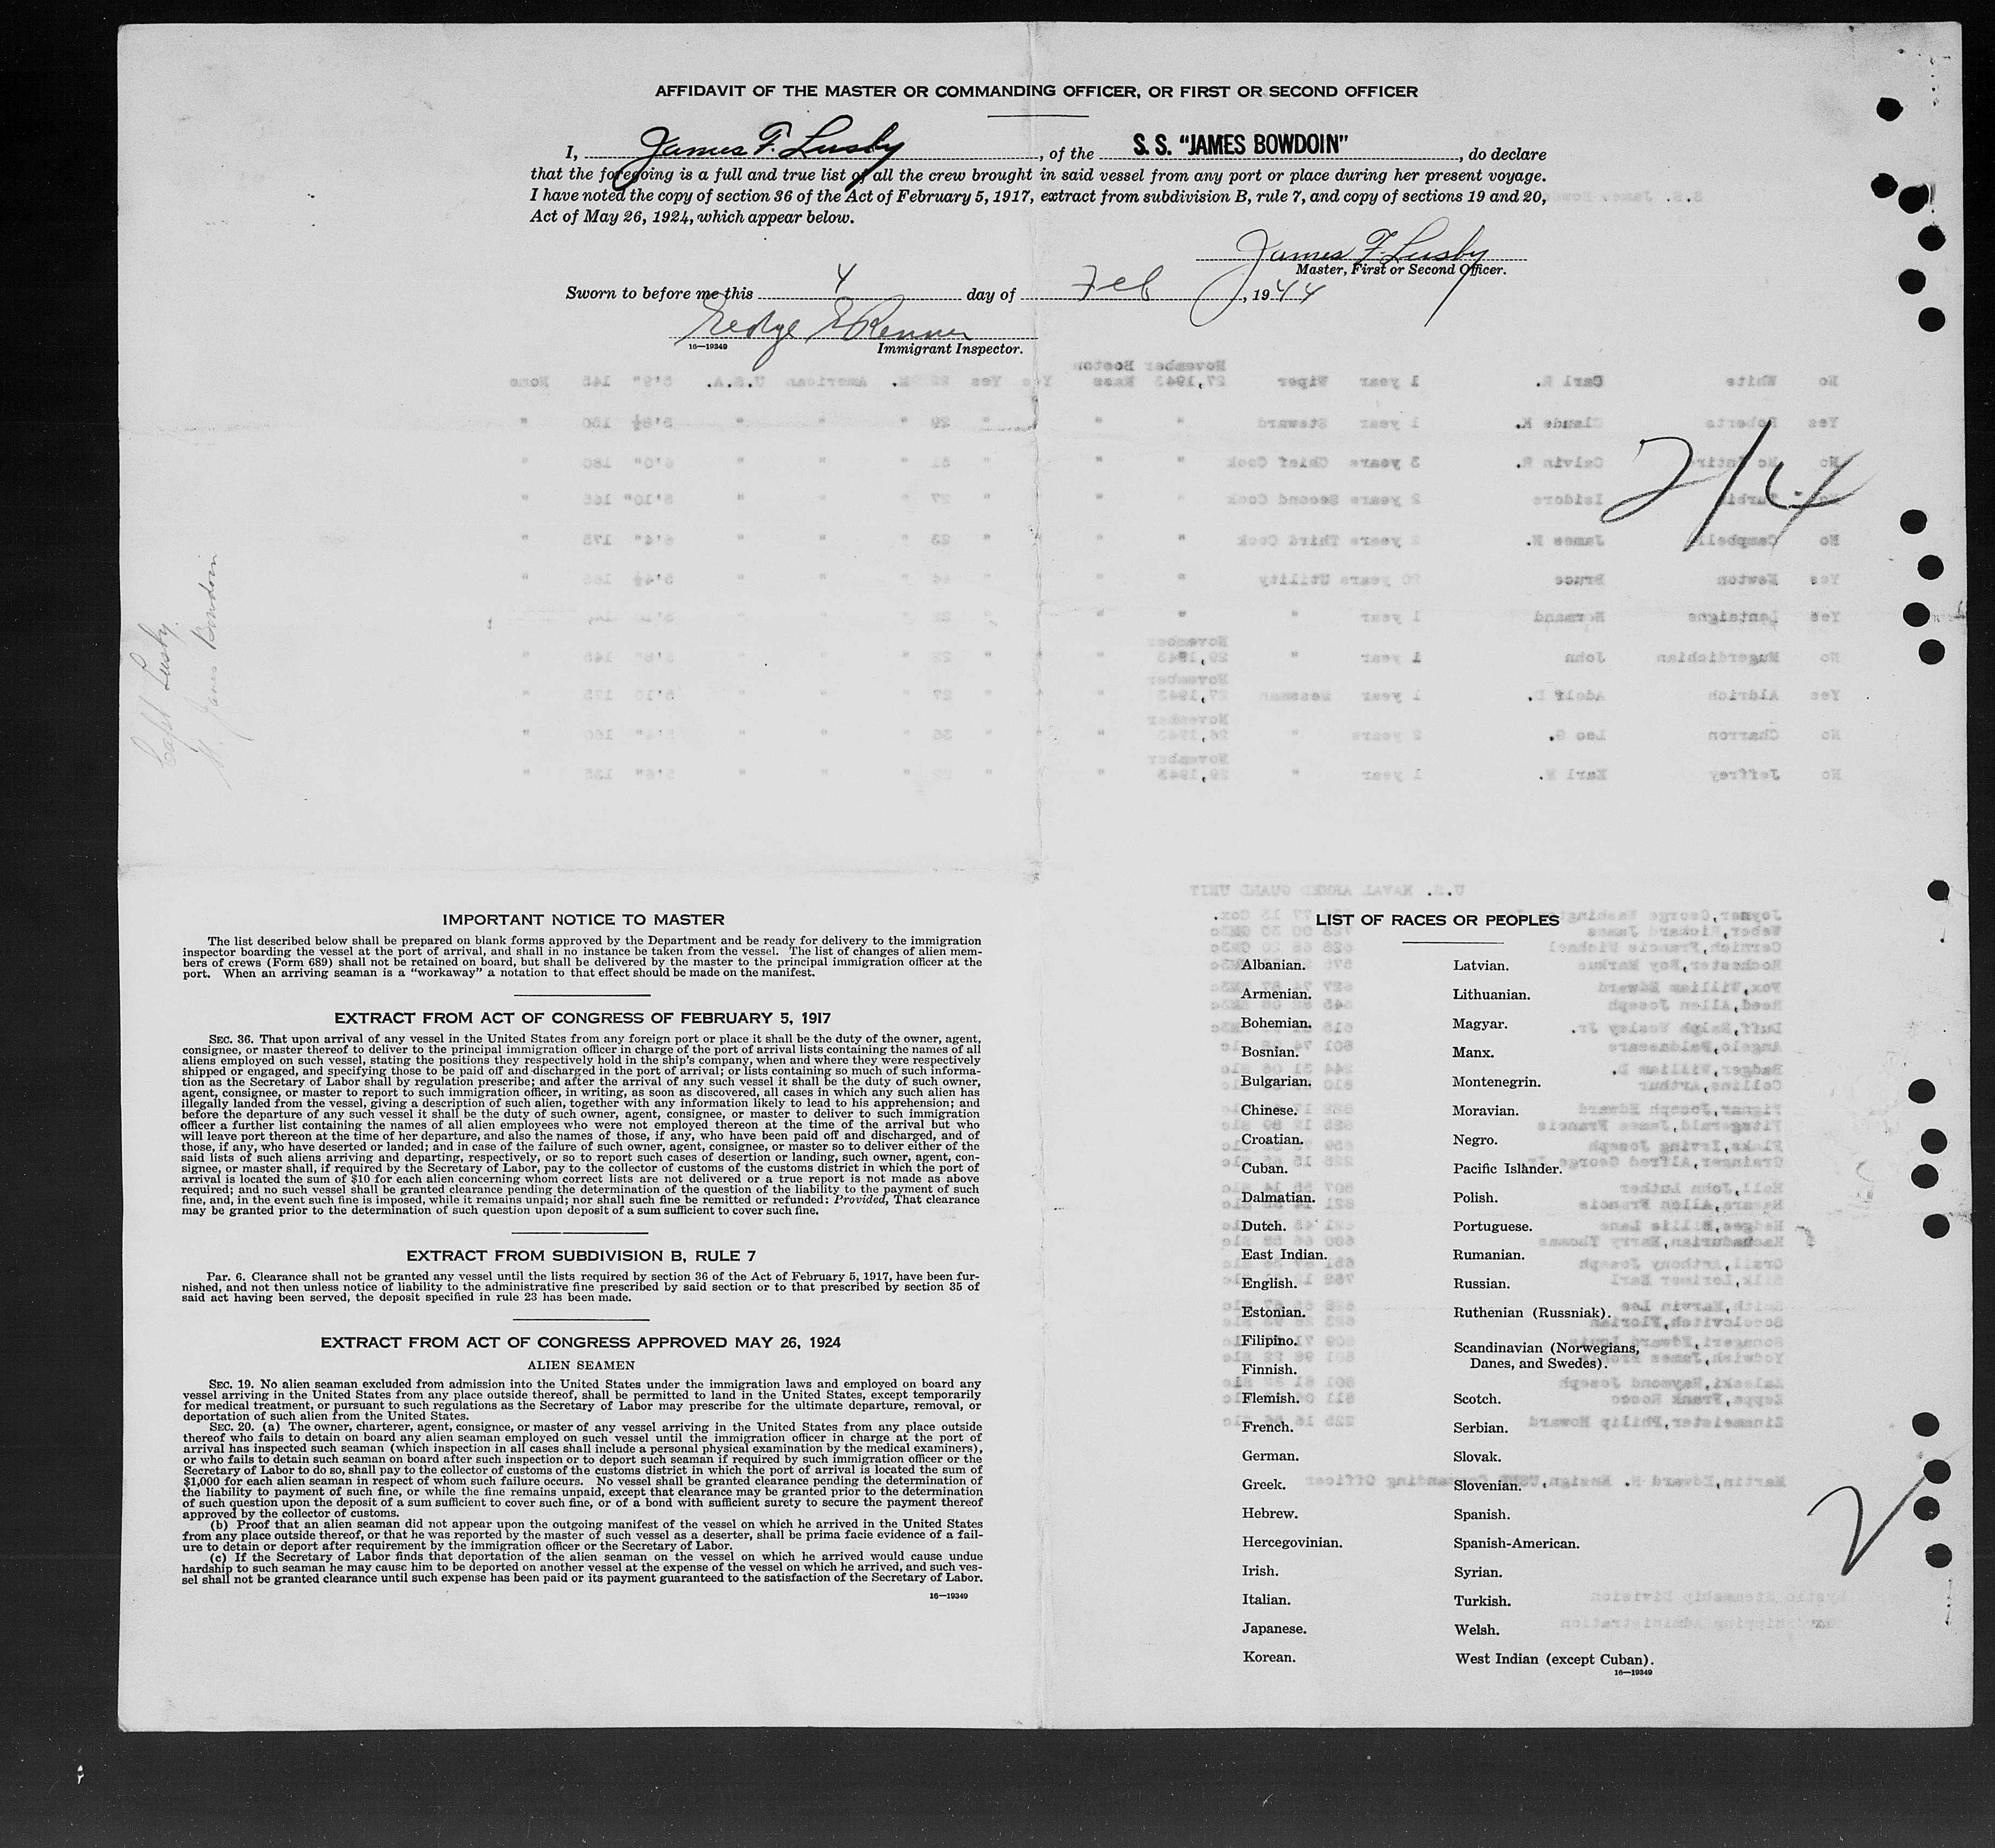 AFFIDAVIT OF THE MASTER OR COMMANDING OFFICER, OR FIRST OR SECOND OFFICER
I, James F. Lusby, of the S. S. "JAMES BOWDOIN", do declare
that the foregoing is a full and true list of all the crew brought in said vessel from any port or place during her present voyage.
I have noted the copy of section 36 of the Act of February 5, 1917, extract from subdivision B, rule 7, and copy of sections 19 and 20,
Act of May 26, 1924, which appear below.
James F. Lusby
Master, First or Second Officer.
Sworn to before me this 4 day of Feb, 1944
George Renner
16—19349 Immigrant Inspector.
2/4
Capt Lusby
James Bowdoin
IMPORTANT NOTICE TO MASTER
The list described below shall be prepared on blank forms approved by the Department and be ready for delivery to the immigration
inspector boarding the vessel at the port of arrival, and shall in no instance be taken from the vessel. The list of changes of alien mem-
bers of crews (Form 689) shall not be retained on board, but shall be delivered by the master to the principal immigration officer at the
port. When an arriving seaman is a "workaway" a notation to that effect should be made on the manifest.
EXTRACT FROM ACT OF CONGRESS OF FEBRUARY 5, 1917
SEC. 36. That upon arrival of any vessel in the United States from any foreign port or place it shall be the duty of the owner, agent,
consignee, or master thereof to deliver to the principal immigration officer in charge of the port of arrival lists containing the names of all
aliens employed on such vessel, stating the positions they respectively hold in the ship's company, when and where they were respectively
shipped or engaged, and specifying those to be paid off and discharged in the port of arrival; or lists containing so much of such informa-
tion as the Secretary of Labor shall by regulation prescribe; and after the arrival of any such vessel it shall be the duty of such owner,
agent, consignee, or master to report to such immigration officer, in writing, as soon as discovered, all cases in which any such alien has
illegally landed from the vessel, giving a description of such alien, together with any information likely to lead to his apprehension; and
before the departure of any such vessel it shall be the duty of such owner, agent, consignee, or master to deliver to such immigration
officer a further list containing the names of all alien employees who were not employed thereon at the time of the arrival but who
will leave port thereon at the time of her departure, and also the names of those, if any, who have been paid off and discharged, and of
those, if any, who have deserted or landed; and in case of the failure of such owner, agent, consignee, or master so to deliver either of the
said lists of such aliens arriving and departing, respectively, or so to report such cases of desertion or landing, such owner, agent, con-
signee, or master shall, if required by the Secretary of Labor, pay to the collector of customs of the customs district in which the port of
arrival is located the sum of $10 for each alien concerning whom correct lists are not delivered or a true report is not made as above
required; and no such vessel shall be granted clearance pending the determination of the question of the liability to the payment of such
fine, and, in the event such fine is imposed, while it remains unpaid; nor shall such fine be remitted or refunded: Provided, That clearance
may be granted prior to the determination of such question upon deposit of a sum sufficient to cover such fine.
EXTRACT FROM SUBDIVISION B, RULE 7
Par. 6. Clearance shall not be granted any vessel until the lists required by section 36 of the Act of February 5, 1917, have been fur-
nished, and not then unless notice of liability to the administrative fine prescribed by said section or to that prescribed by section 35 of
said act having been served, the deposit specified in rule 23 has been made.
EXTRACT FROM ACT OF CONGRESS APPROVED MAY 26, 1924
ALIEN SEAMEN
SEC. 19. No alien seaman excluded from admission into the United States under the immigration laws and employed on board any
vessel arriving in the United States from any place outside thereof, shall be permitted to land in the United States, except temporarily
for medical treatment, or pursuant to such regulations as the Secretary of Labor may prescribe for the ultimate departure, removal, or
deportation of such alien from the United States.
SEC. 20. (a) The owner, charterer, agent, consignee, or master of any vessel arriving in the United States from any place outside
thereof who fails to detain on board any alien seaman employed on such vessel until the immigration officer in charge at the port of
arrival has inspected such seaman (which inspection in all cases shall include a personal physical examination by the medical examiners),
or who fails to detain such seaman on board after such inspection or to deport such seaman if required by such immigration officer or the
Secretary of Labor to do so, shall pay to the collector of customs of the customs district in which the port of arrival is located the sum of
$1,000 for each alien seaman in respect of whom such failure occurs. No vessel shall be granted clearance pending the determination of
the liability to payment of such fine, or while the fine remains unpaid, except that clearance may be granted prior to the determination
of such question upon the deposit of a sum sufficient to cover such fine, or of a bond with sufficient surety to secure the payment thereof
approved by the collector of customs.
(b) Proof that an alien seaman did not appear upon the outgoing manifest of the vessel on which he arrived in the United States
from any place outside thereof, or that he was reported by the master of such vessel as a deserter, shall be prima facie evidence of a fail-
ure to detain or deport after requirement by the immigration officer or the Secretary of Labor.
(c) If the Secretary of Labor finds that deportation of the alien seaman on the vessel on which he arrived would cause undue
hardship to such seaman he may cause him to be deported on another vessel at the expense of the vessel on which he arrived, and such ves-
sel shall not be granted clearance until such expense has been paid or its payment guaranteed to the satisfaction of the Secretary of Labor.
16—19349
LIST OF RACES OR PEOPLES
Albanian.
Armenian.
Bohemian.
Bosnian.
Bulgarian.
Chinese.
Croatian.
Cuban.
Dalmatian.
Dutch.
East Indian.
English.
Estonian.
Filipino.
Finnish.
Flemish.
French.
German.
Greek.
Hebrew.
Hercegovinian.
Irish.
Italian.
Japanese.
Korean.
Latvian.
Lithuanian.
Magyar.
Manx.
Montenegrin.
Moravian.
Negro.
Pacific Islander.
Polish.
Portuguese.
Rumanian.
Russian.
Ruthenian (Russniak).
Scandinavian (Norwegians,
Danes, and Swedes).
Scotch.
Serbian.
Slovak.
Slovenian.
Spanish.
Spanish-American.
Syrian.
Turkish.
Welsh.
West Indian (except Cuban).
16—19349
2